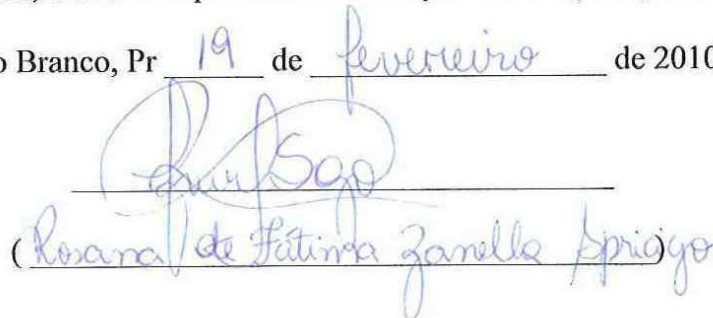 o Branco, Pr 19 de fevereiro de 2010
(Rosana de Fátima Zanella Sprigo)